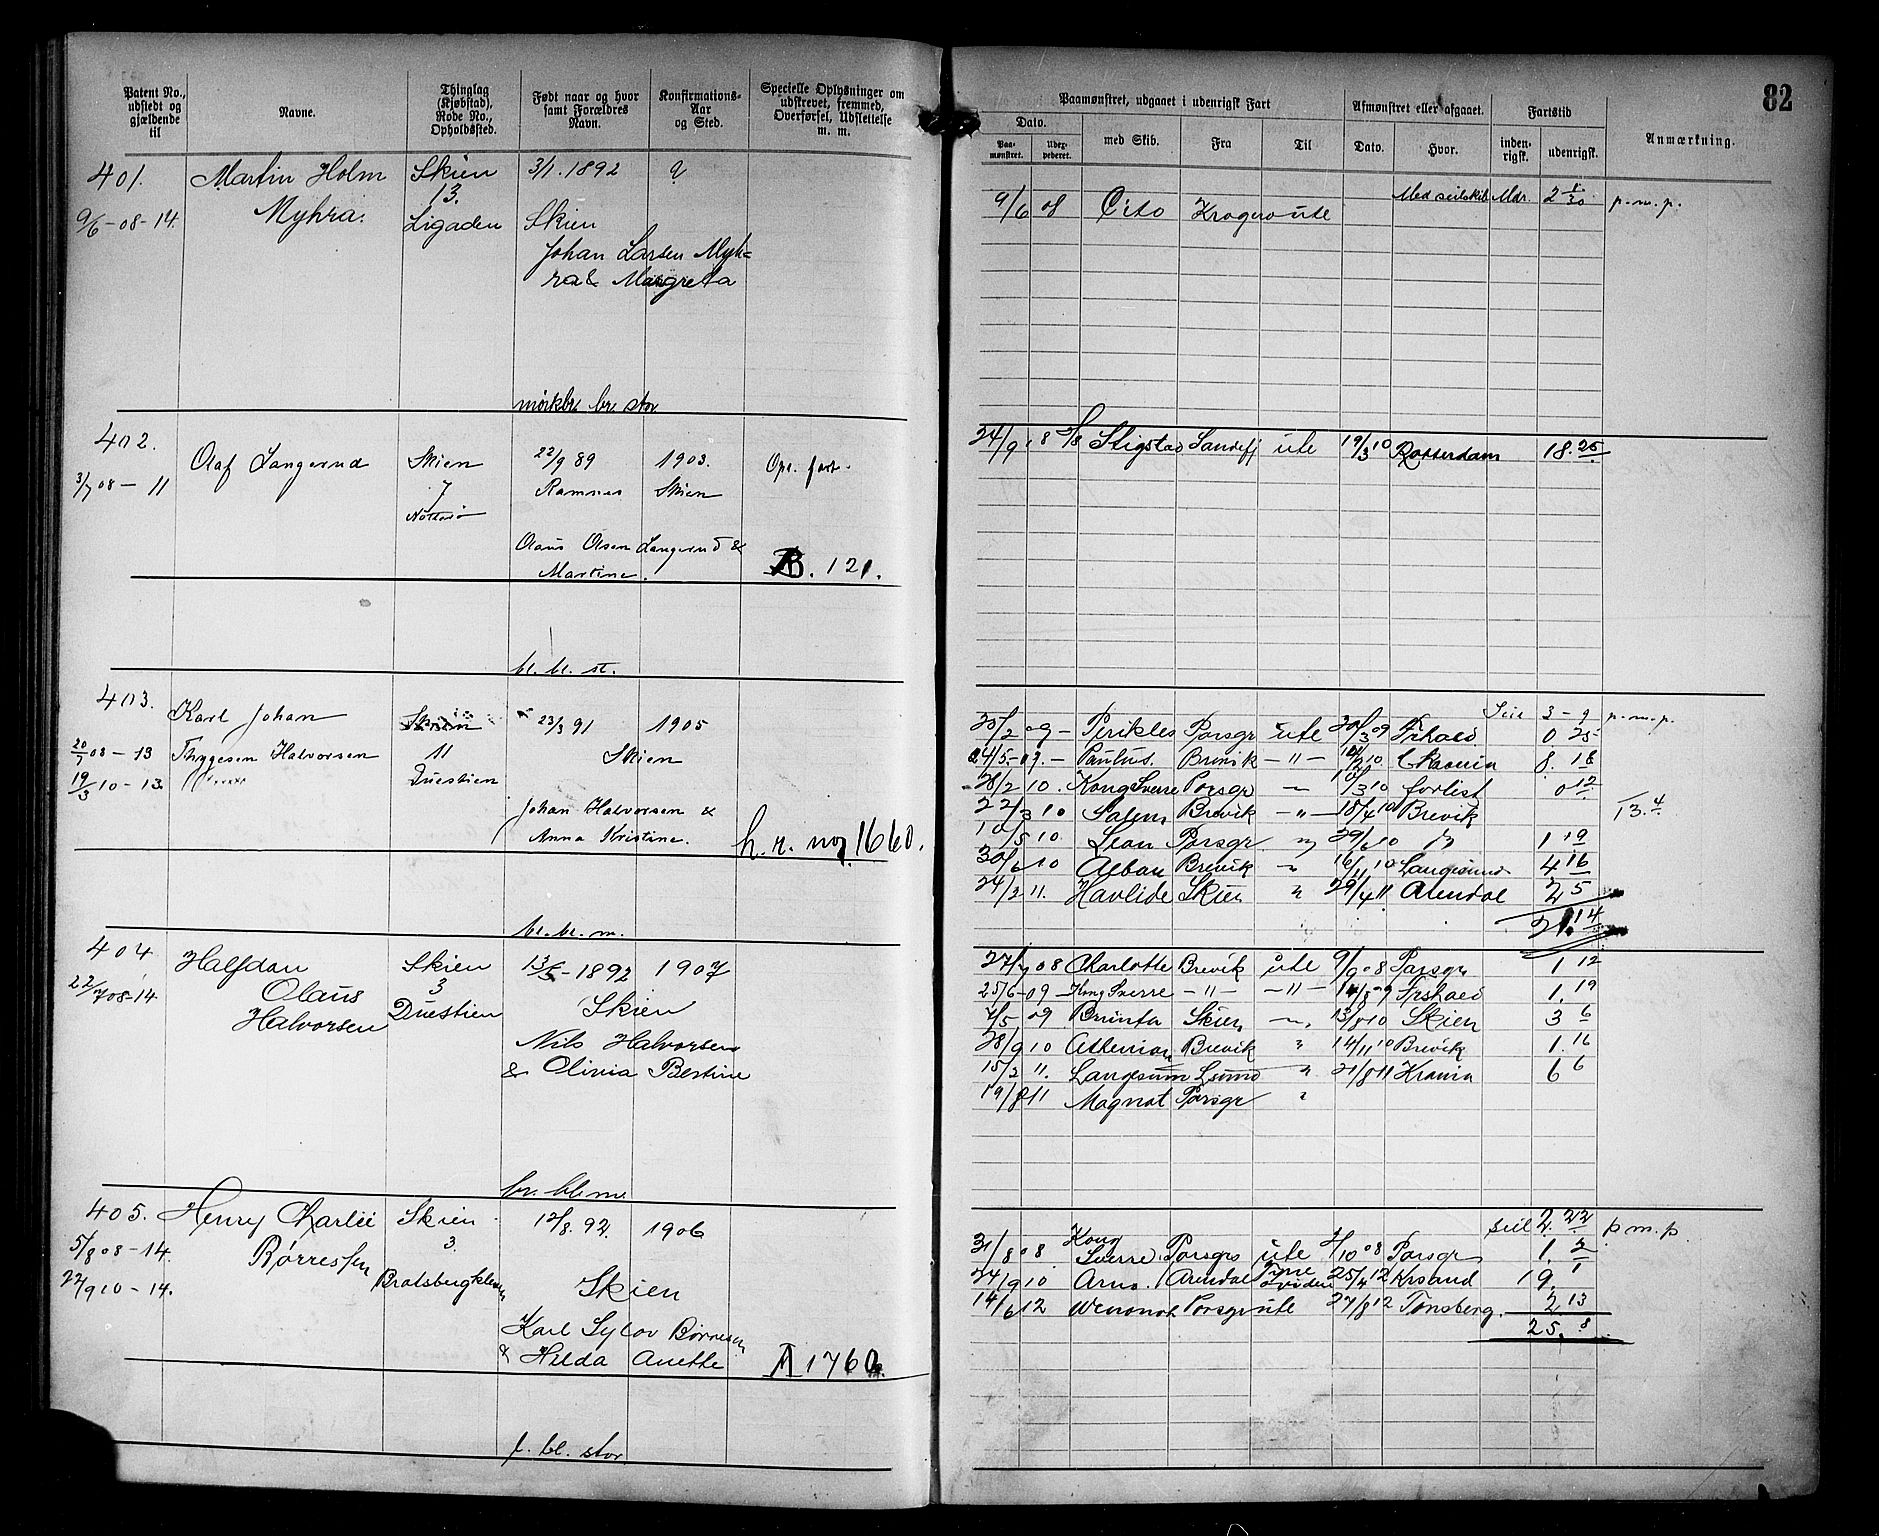 Patent No., udstedt og gjældende til
Navne.
Thinglag (Kjøbstad), Rode No., Opholdssted.
Født naar og hvor samt Forældres Navn.
Konfirmations-Aar og Sted.
Specielle Oplysninger om udskrevet, fremmed, Overførsel, Udslettelse m. m.
401.
9/6 - 08 - 14.
Martin Holm
Myhra.
Skien
13.
Ligaden
3/1. 1892
Skien
Johan Larsen Myh=
ra & Margreta
mørkbr br stor
402.
3/7 08 - 11
Olaf Langerud
Skien
7
Nøtterø
22/9 89
Ramnes
1903.
Skien
Olaus Olsen Langerud &
Martine.
Opl. fart.
B. 121.
bl. bl. st.
403.
20/7 08 - 13
19/3 10 - 13.
Karl Johan
Thygesen Halvorsen
Skien
11
Duestien
23/3 91
1905
Skien
Johan Halvorsen &
Anna Kristine.
h. r. no 1660.
bl. bl. m.
404
22/7 08-14
Halfdan
Olaus
Halvorsen
Skien
3
Duestien
13/5 - 1892
1907
Skien
Nils Halvorsen
& Olivia Bestine
br. bl m.
405.
5/8 08 - 14.
22/9 10 - 14.
Henry Charlii
Børressen
Skien
3.
Bratsbergkleven
12/8. 92.
1906
Skien
Karl Sylov Børresen
& Hilda Anette
A 1760
f. bl. stor.
82
Paamønstret, udgaaet i udenrigsk Fart
Afmønstret eller afgaaet.
Fartstid
Anmærkning.
Dato.
Paa-mønstret.
med Skib.
Fra
Til
Dato.
Hvor.
inden-rigsk.
udenrigsk.
9/6 08 Cito Kragerø ute
Med seilskib Mdr. 2 p. m. p.
24/9 08 S/S Stigstad Sandefj ute 19/3 10 Rotterdam 18. 25
Seil 3 - 9 p. m. p.
20/2 09 - Perikles Porsgr ute 20/3 09 0 25
24/5 - 09. - Paulus. Brevik - " - 8. 18
28/2 10. Kong Sverre Porsgr - /3 10 forlist 0 12
22/3 10 Salem Brevik - " - 18/4 10 Brevik 13. 4
10/5 10 Leon Porsgr " 29/6 10 1 19
30/6 10 Alban Brevik " 16/11 10 Langesund 4 16
24/2 11. Havlide Skien " 29/4 11 Arendal 2 5
21. 14
27/7 08 Charlotte Brevik ute 9/9 08 Porsgr 1 12
25/6 - 09 - Kong Sverre - " - - " - /8 09 Frshald 1. 19
/5 09 Skien - " 13/8 10 Skien 3 6
28/9 10 Athenian Brevik " 14/11 10 Brevik 1. 16
15/2 11. Langesund Lsund " 21/8 11 Krania 6 6
19/8 11 Magnat Porsgr "
seil 2. 22 p m. p.
31/8 08 Kong Sverre Porsgr ute 2/10 08 Porsgr 1. 2
24/9 10 Arno. Arendal Tyne 25/4 12 Krsand 19. 1
14/6 12 Wenonah Porsgr ute 27/8 12 Tønsberg. 2 13
25. 8